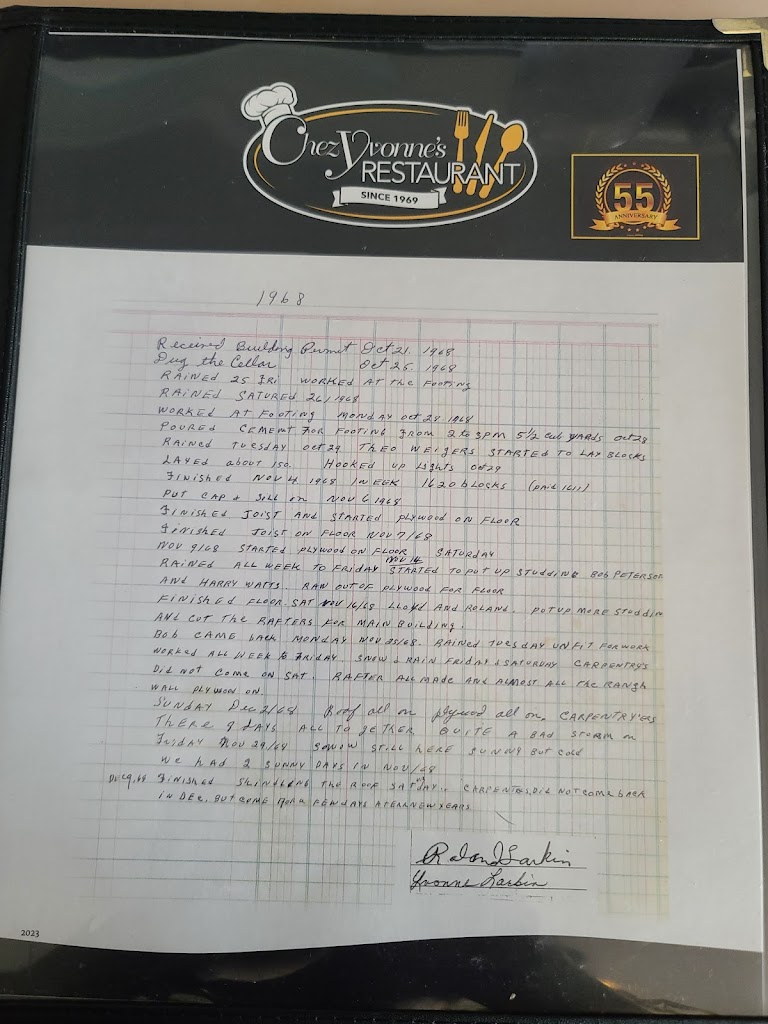 Chez Yvonne's
RESTAURANT
SINCE 1969
55
ANNIVERSARY
1968
Received Building Permit Oct 21, 1968
Dug the Cellar Oct 25, 1968
RAINED 25 FRI WORKED AT the FOOTING
RAINED SATURED 26/1968
WORKED AT FOOTING MONDAY oct 28 1968
POURED CEMENT FOR FOOTING FROM 2 to 3PM 5½ cub YARDS oct 28
RAINED TUESDAY oct 29 THEO WEIGERS STARTED to LAY BLOCKS
LAYED about 150. HOOKED up Lights oct 29
FINISHED NOV 4 1968 IN EEK 1620 blocks (paid 1611)
put CAP & SILL on NOV 6 1968
FINISHED JOIST AND STARTED PLYWOOD ON FLOOR
FINISHED JOIST ON FLOOR NOV 7/68
NOV 9/68 STARTED PLYWOOD ON FLOOR SATURDAY
NOV 14
RAINED ALL WEEK TO FRIDAY STARTED TO PUT UP STUDDING BOB PETERSON
AND HARRY WATTS. RAN OUT OF PLYWOOD FOR FLOOR
FINISHED FLOOR. SAT NOV 16/68 LLOYD AND ROLAND. POTUP MORE STUDDIN
AND CUT THE RAFTERS FOR MAIN BUILDING.
BOB CAME back MONDAY NOV 25/68. RAINED TUESDAY UNFIT FOR WORK
WORKED ALL WEEK to FRIDAY. SNOW & RAIN FRIDAY & SATURDAY CARPENTRYS
DID NOT COME ON SAT. RAFTER ALL MADE AND ALMOST ALL the
WALL PLYWOOD ON.
SUNDAY Dec 2/68. Roof all on plywood all on. CARPENTRY'ERS
THERE 9 DAYS ALL TO GETHER QUITE A BAD STORM on
Friday NOV 29/68 STILL HERE SUNNY BUT COLD
WE HAD 2 SUNNY DAYS IN NOV/68
FINISHED THE ROOF DID NOT COME BACK
IN DEC. BUT COME FOR A FEW DAYS NEW YEARS
Roland Larkin
Yvonne Larkin
2023